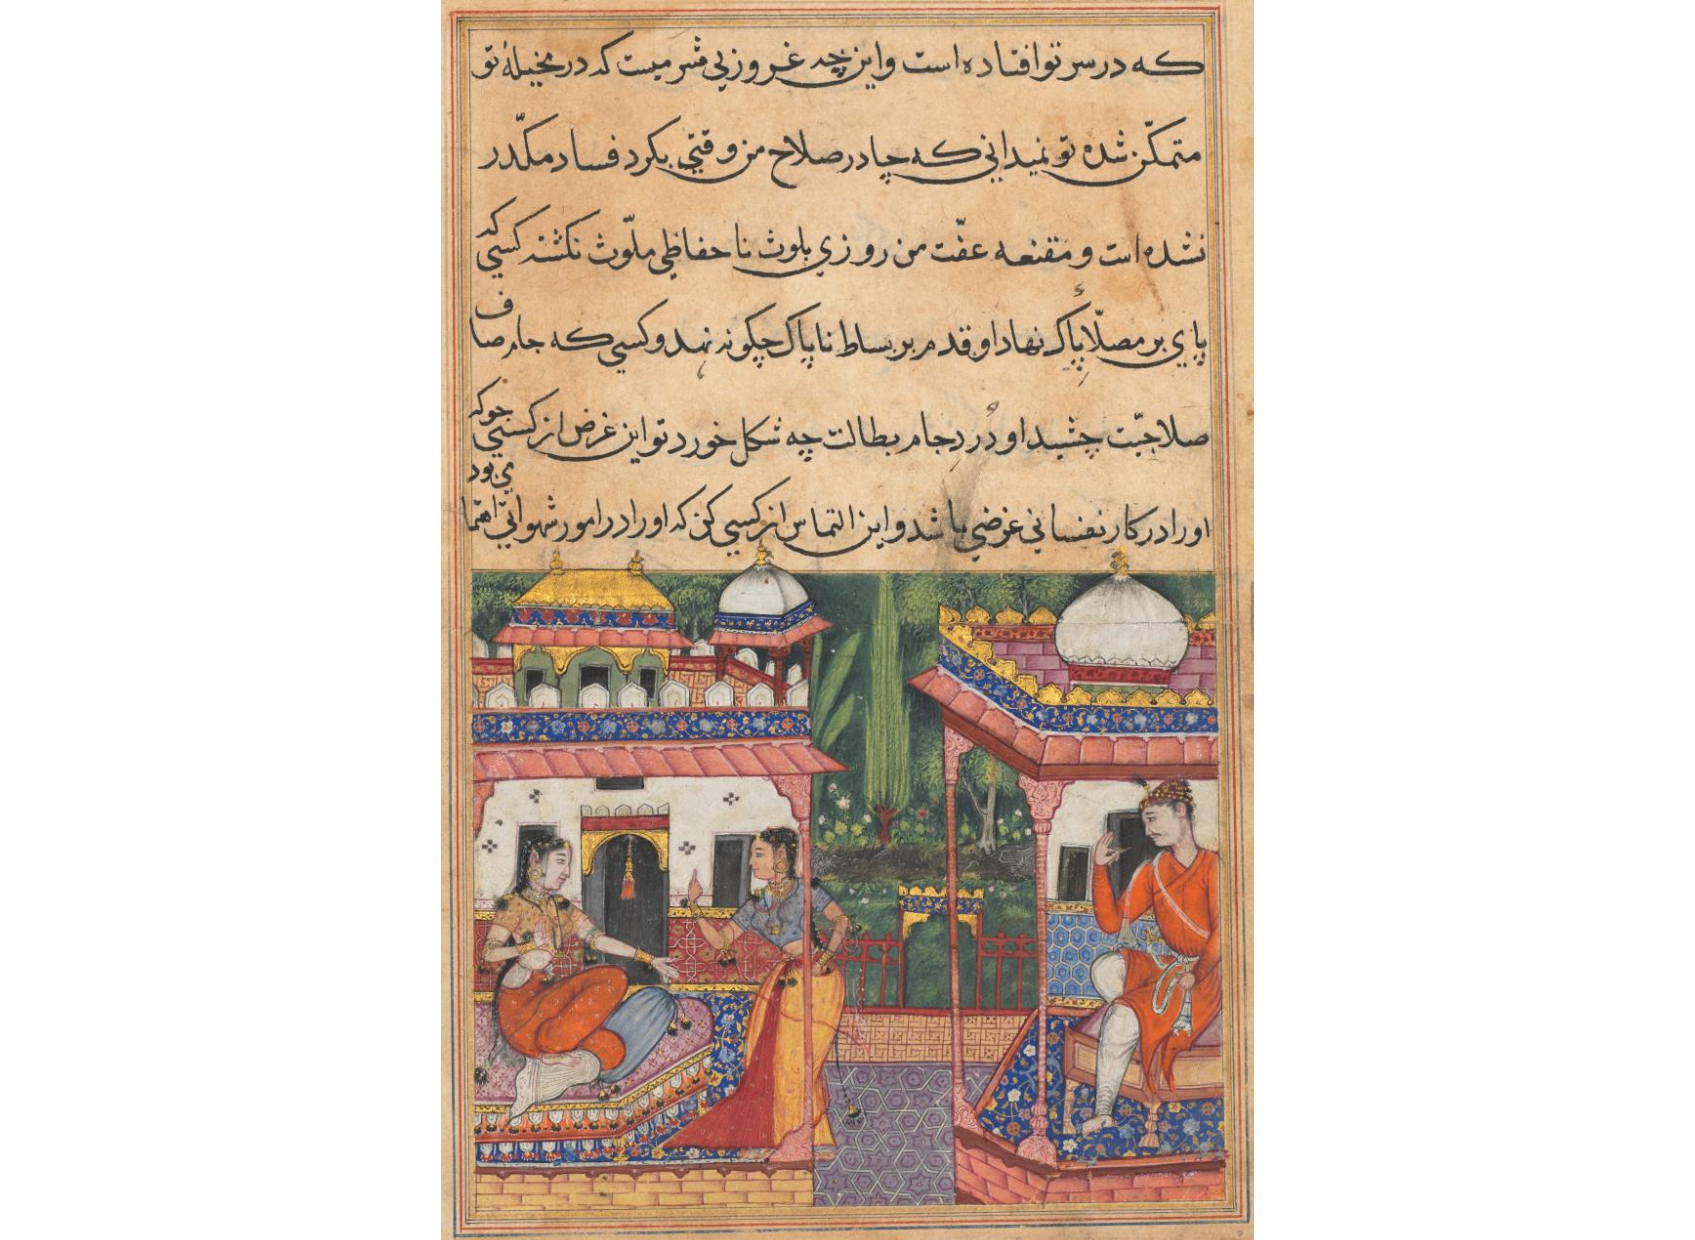 که در سر تو افتاده است و این چه غروز بی شرمیست که در مخیلهٔ تو
متمکّن شده تو نمیدانی که چادر صلاح من وقتی بکرد فساد مکدّر
نشده است و مقنعه عفّت من روزی بلوث نا حفاظی ملّوث نکشته کسی که
پای بر مصلّاء پاک نهاد او قدم بر بساط ناپاک چکونه نهد و کسی که جام صاف
صلاحیّت چشید او دُردِ جام بطالت چه شکل خورد تو این غرض از کسی جو که
او را در کار نفسانی غرضی باشد و این التماس از کسی کن که او را در امور شهوانی اهتمامی بود